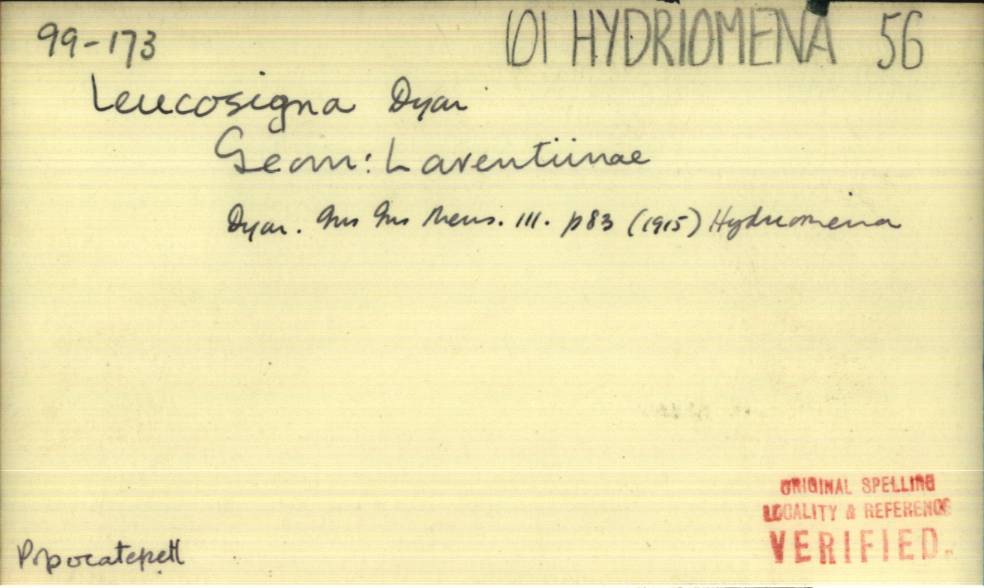 99-173
(O) HYDRIOMENA 56
Leucosigna Dyar
Geom: Laventiinae
Dyar. Ins Ins Mens. III. p83 (1915) Hydriomena
ORIGINAL SPELLING
LOCALITY & REFERENCE
VERIFIED.
Popocatepetl